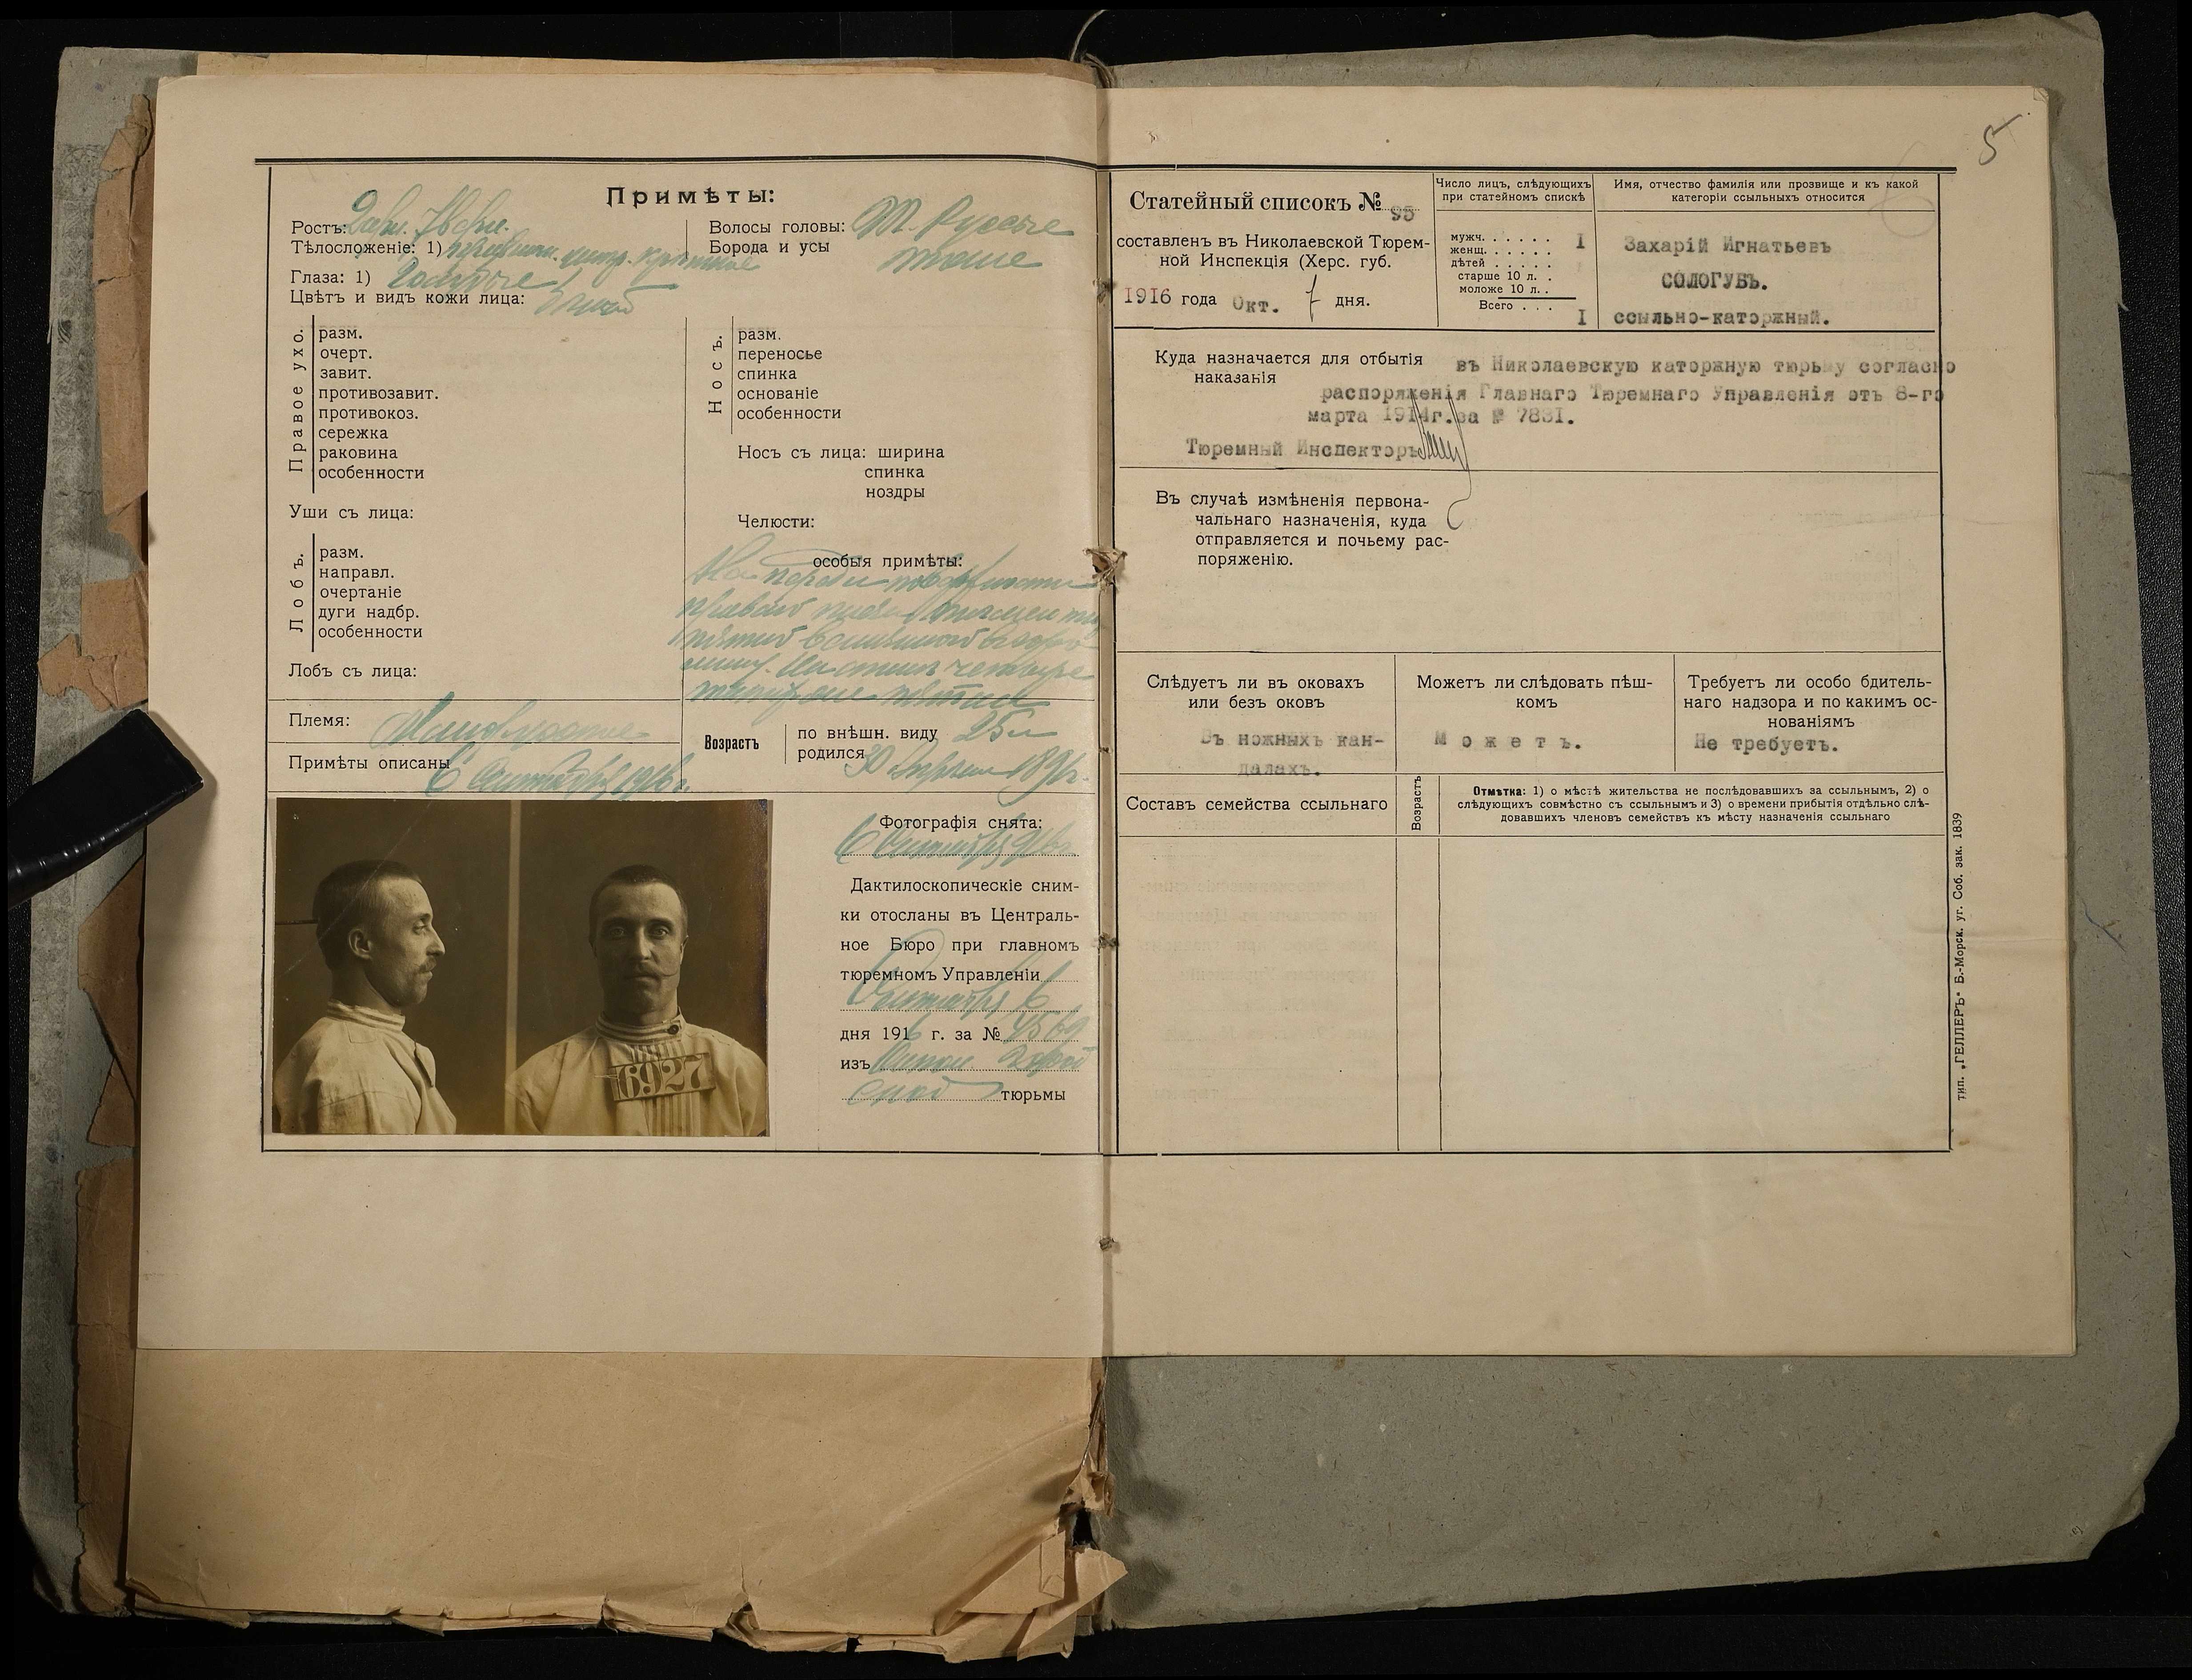 5
Примѣты:
Ростъ: 2 арш. 7 верш.
Тѣлосложеніе: 1)
Глаза: 1) Голубые
Цвѣтъ и видъ кожи лица:
Волосы головы: Т. Русые
Борода и усы тоже
Правое ухо.
разм.
очерт.
завит.
противозавит.
противокоз.
сережка
раковина
особенности
Уши съ лица:
Лобъ.
разм.
направл.
очертаніе
дуги надбр.
особенности
Лобъ съ лица:
Носъ.
разм.
переносье
спинка
основаніе
особенности
Носъ съ лица: ширина
спинка
ноздры
Челюсти:
особыя примѣты:
На
правой
Племя:
Примѣты описаны 6 Сентября 1916 г.
Возрастъ
по внѣшн. виду 25 л
родился 30 Апрѣля 1891 г.
Фотографія снята:
6 Сентября 916 г.
Дактилоскопическіе сним-
ки отосланы въ Централь-
ное Бюро при главномъ
тюремномъ Управленіи
Сентября 6
дня 1916 г. за № 4569
изъ
ской тюрьмы
6927
Статейный списокъ № 95
составленъ въ Николаевской Тюрем-
ной Инспекція (Херс. губ.
1916 года Окт. 7 дня.
Число лицъ, слѣдующихъ
при статейномъ спискѣ
мужч. . . . . . I
женщ. . . . . .
дѣтей . . . . .
старше 10 л. . .
моложе 10 л. . .
Всего . . . I
Имя, отчество фамилія или прозвище и къ какой
категоріи ссыльныхъ относится
Захарій Игнатьевъ
СОЛОГУБЪ.
ссыльно-каторжный.
Куда назначается для отбытія
наказанія
въ Николаевскую каторжную тюрьму согласно
распоряженія Главнаго Тюремнаго Управленія отъ 8-го
марта 1914г. за № 7831.
Тюремный Инспекторъ
Въ случаѣ измѣненія первона-
чальнаго назначенія, куда
отправляется и почьему рас-
поряженію.
Слѣдуетъ ли въ оковахъ
или безъ оковъ
Въ ножныхъ кан-
далахъ.
Можетъ ли слѣдовать пѣш-
комъ
Можетъ.
Требуетъ ли особо бдитель-
наго надзора и по какимъ ос-
нованіямъ
Не требуетъ.
Составъ семейства ссыльнаго
Возрастъ
Отмѣтка: 1) о мѣстѣ жительства не послѣдовавшихъ за ссыльнымъ, 2) о
слѣдующихъ совмѣстно съ ссыльнымъ и 3) о времени прибытія отдѣльно слѣ-
довавшихъ членовъ семействъ къ мѣсту назначенія ссыльнаго
тип. „ГЕЛЛЕРЪ“ Б.-Морск. уг. Соб. зак. 1839